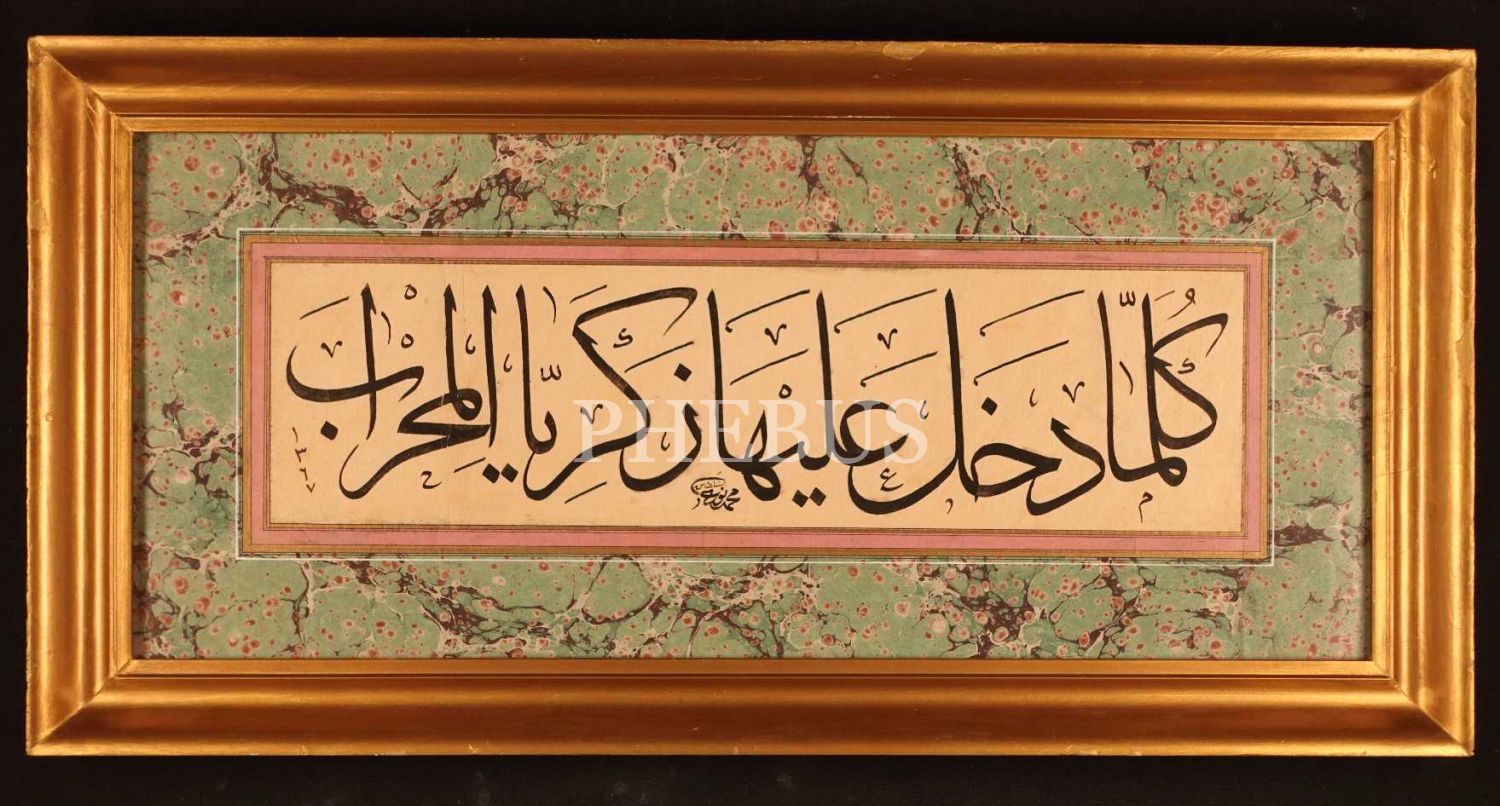 كُلَّمَا دَخَلَ عَلَيْهَا زَكَرِيَّا الْمِحْرَابَ
محمد
PHEBUS